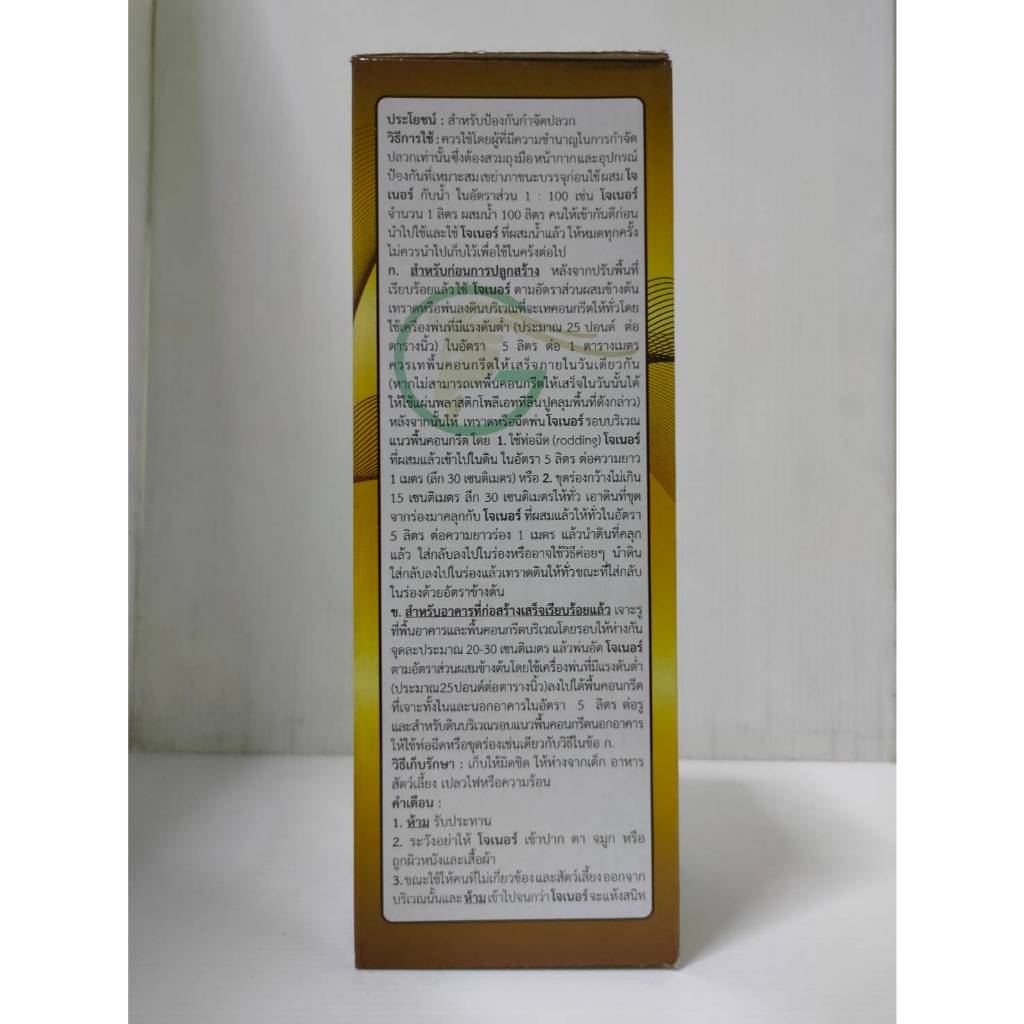 ประโยชน์ : สำหรับป้องกันกำจัดปลวก
วิธีการใช้ : ควรใช้โดยผู้ที่มีความชำนาญในการกำจัด
ปลวกเท่านั้น ซึ่งต้องสวมถุงมือ หน้ากาก และอุปกรณ์
ป้องกันที่เหมาะสม เขย่าภาชนะบรรจุก่อนใช้ ผสม โจ
เนอร์ กับน้ำ ในอัตราส่วน 1 : 100 เช่น โจเนอร์
จำนวน 1 ลิตร ผสมน้ำ 100 ลิตร คนให้เข้ากันดีก่อน
นำไปใช้และใช้ โจเนอร์ ที่ผสมน้ำแล้ว ให้หมดทุกครั้ง
ไม่ควรนำไปเก็บไว้เพื่อใช้ในครั้งต่อไป
ก. สำหรับก่อนการปลูกสร้าง หลังจากปรับพื้นที่
เรียบร้อยแล้วใช้ โจเนอร์ ตามอัตราส่วนผสมข้างต้น
เทราดหรือพ่นลงดินบริเวณที่จะเทคอนกรีตให้ทั่วโดย
ใช้เครื่องพ่นที่มีแรงดันต่ำ (ประมาณ 25 ปอนด์ ต่อ
ตารางนิ้ว) ในอัตรา 5 ลิตร ต่อ 1 ตารางเมตร
ควรเทพื้นคอนกรีตให้เสร็จภายในวันเดียวกัน
(หากไม่สามารถเทพื้นคอนกรีตให้เสร็จในวันนั้นได้
ให้ใช้แผ่นพลาสติกโพลีเอททีลีนปูคลุมพื้นที่ดังกล่าว)
หลังจากนั้นให้ เทราดหรือฉีดพ่น โจเนอร์ รอบบริเวณ
แนวพื้นคอนกรีต โดย 1. ใช้ท่อฉีด (rodding) โจเนอร์
ที่ผสมแล้วเข้าไปในดิน ในอัตรา 5 ลิตร ต่อความยาว
1 เมตร (ลึก 30 เซนติเมตร) หรือ 2. ขุดร่องกว้างไม่เกิน
15 เซนติเมตร ลึก 30 เซนติเมตรให้ทั่ว เอาดินที่ขุด
จากร่องมาคลุกกับ โจเนอร์ ที่ผสมแล้วให้ทั่วในอัตรา
5 ลิตร ต่อความยาวร่อง 1 เมตร แล้วนำดินที่คลุก
แล้ว ใส่กลับลงไปในร่องหรืออาจใช้วิธีค่อยๆ นำดิน
ใส่กลับลงไปในร่องแล้วเทราดดินให้ทั่วขณะที่ใส่กลับ
ในร่องด้วยอัตราข้างต้น
ข. สำหรับอาคารที่ก่อสร้างเสร็จเรียบร้อยแล้ว เจาะรู
ที่พื้นอาคารและพื้นคอนกรีตบริเวณโดยรอบให้ห่างกัน
จุดละประมาณ 20-30 เซนติเมตร แล้วพ่นอัด โจเนอร์
ตามอัตราส่วนผสมข้างต้นโดยใช้เครื่องพ่นที่มีแรงดันต่ำ
(ประมาณ25ปอนด์ต่อตารางนิ้ว)ลงไปใต้พื้นคอนกรีต
ที่เจาะทั้งในและนอกอาคารในอัตรา 5 ลิตร ต่อรู
และสำหรับดินบริเวณรอบแนวพื้นคอนกรีตนอกอาคาร
ให้ใช้ท่อฉีดหรือขุดร่องเช่นเดียวกับวิธีในข้อ ก.
วิธีเก็บรักษา : เก็บให้มิดชิด ให้ห่างจากเด็ก อาหาร
สัตว์เลี้ยง เปลวไฟหรือความร้อน
คำเตือน :
1. ห้าม รับประทาน
2. ระวังอย่าให้ โจเนอร์ เข้าปาก ตา จมูก หรือ
ถูกผิวหนังและเสื้อผ้า
3. ขณะใช้ให้คนที่ไม่เกี่ยวข้อง และสัตว์เลี้ยง ออกจาก
บริเวณนั้นและ ห้าม เข้าไปจนกว่า โจเนอร์ จะแห้งสนิท